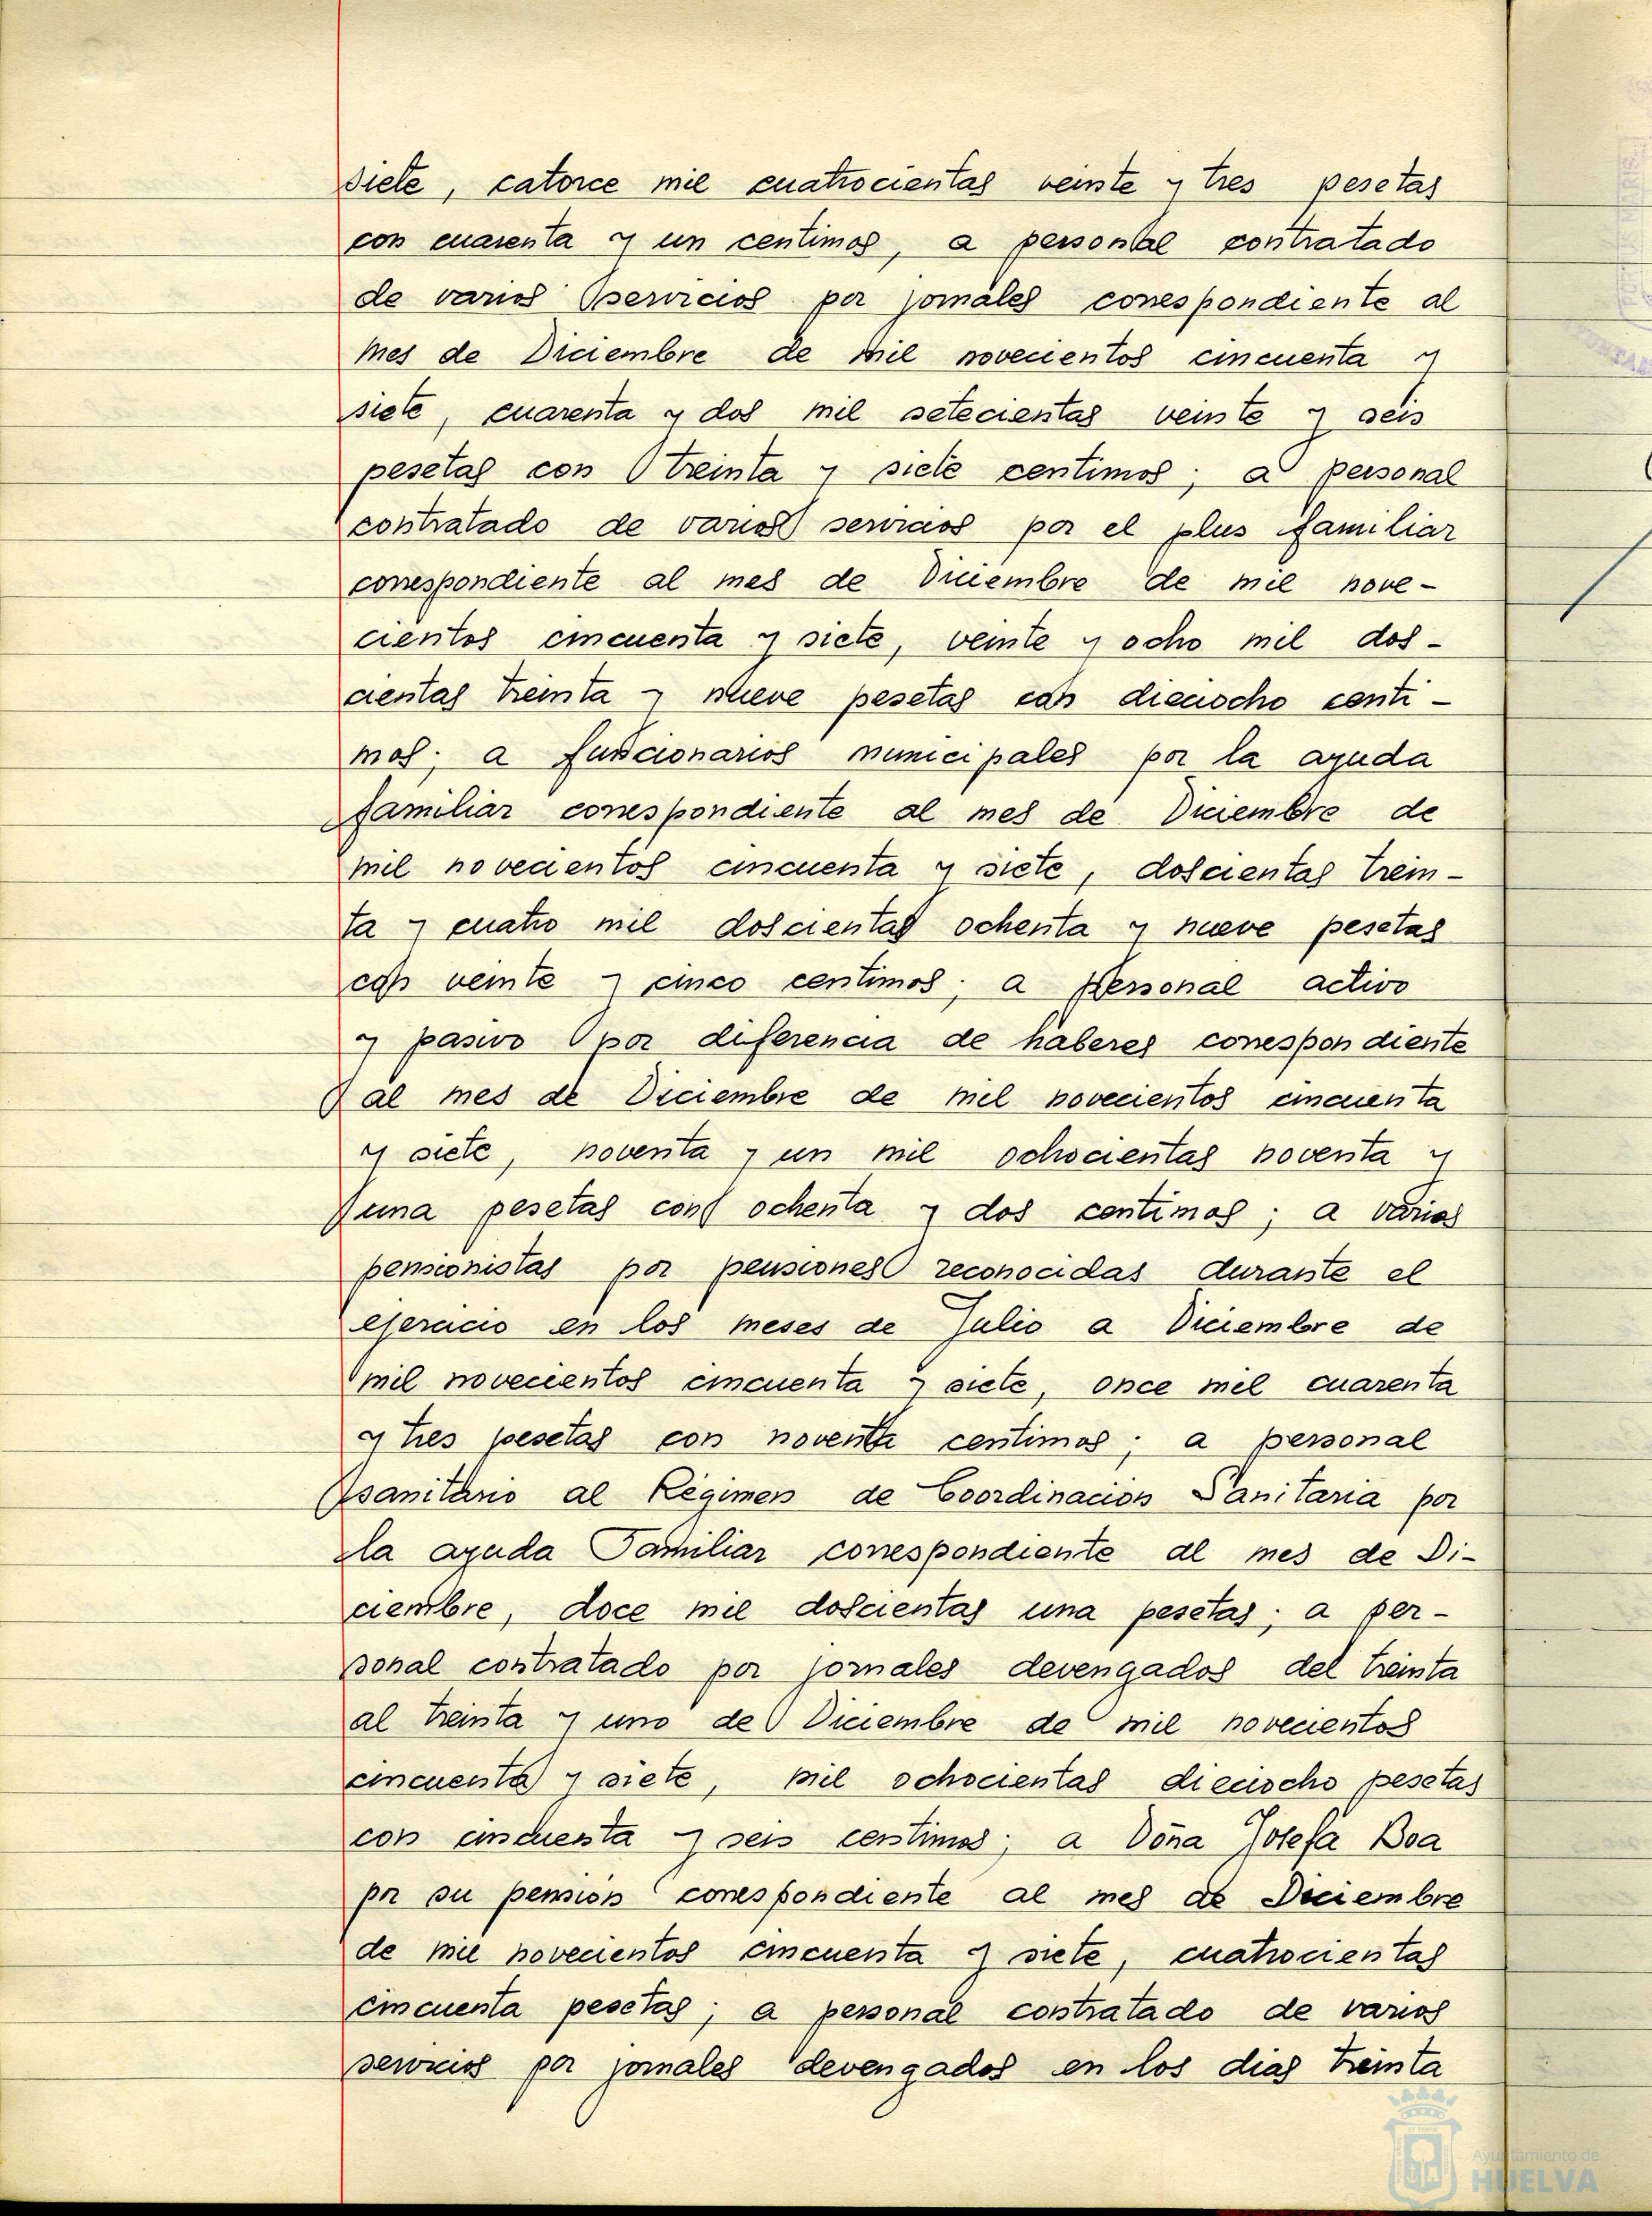 siete, catorce mil cuatrocientas veinte y tres pesetas
con cuarenta y un centimos, a personal contratado
de varios servicios por jornales correspondiente al
mes de Diciembre de mil novecientos cincuenta y
siete, cuarenta y dos mil setecientas veinte y seis
pesetas con treinta y siete centimos; a personal
contratado de varios servicios por el plus familiar
correspondiente al mes de Diciembre de mil nove-
cientos cincuenta y siete, veinte y ocho mil dos-
cientas treinta y nueve pesetas con dieciocho centi-
mos; a funcionarios municipales por la ayuda
familiar correspondiente al mes de Diciembre de
mil novecientos cincuenta y siete, doscientas trein-
ta y cuatro mil doscientas ochenta y nueve pesetas
con veinte y cinco centimos; a personal activo
y pasivo por diferencia de haberes correspondiente
al mes de Diciembre de mil novecientos cincuenta
y siete, noventa y un mil ochocientas noventa y
una pesetas con ochenta y dos centimos; a varios
pensionistas por pensiones reconocidas durante el
ejercicio en los meses de Julio a Diciembre de
mil novecientos cincuenta y siete, once mil cuarenta
y tres pesetas con noventa centimos; a personal
sanitario al Régimen de Coordinacion Sanitaria por
la ayuda Familiar correspondiente al mes de Di-
ciembre, doce mil doscientas una pesetas; a per-
sonal contratado por jornales devengados del treinta
al treinta y uno de Diciembre de mil novecientos
cincuenta y siete, mil ochocientas dieciocho pesetas
con cincuenta y seis centimos; a Doña Josefa Boa
por su pension correspondiente al mes de Diciembre
de mil novecientos cincuenta y siete, cuatrocientas
cincuenta pesetas; a personal contratado de varios
servicios por jornales devengados en los dias treinta
Ayuntamiento de
HUELVA